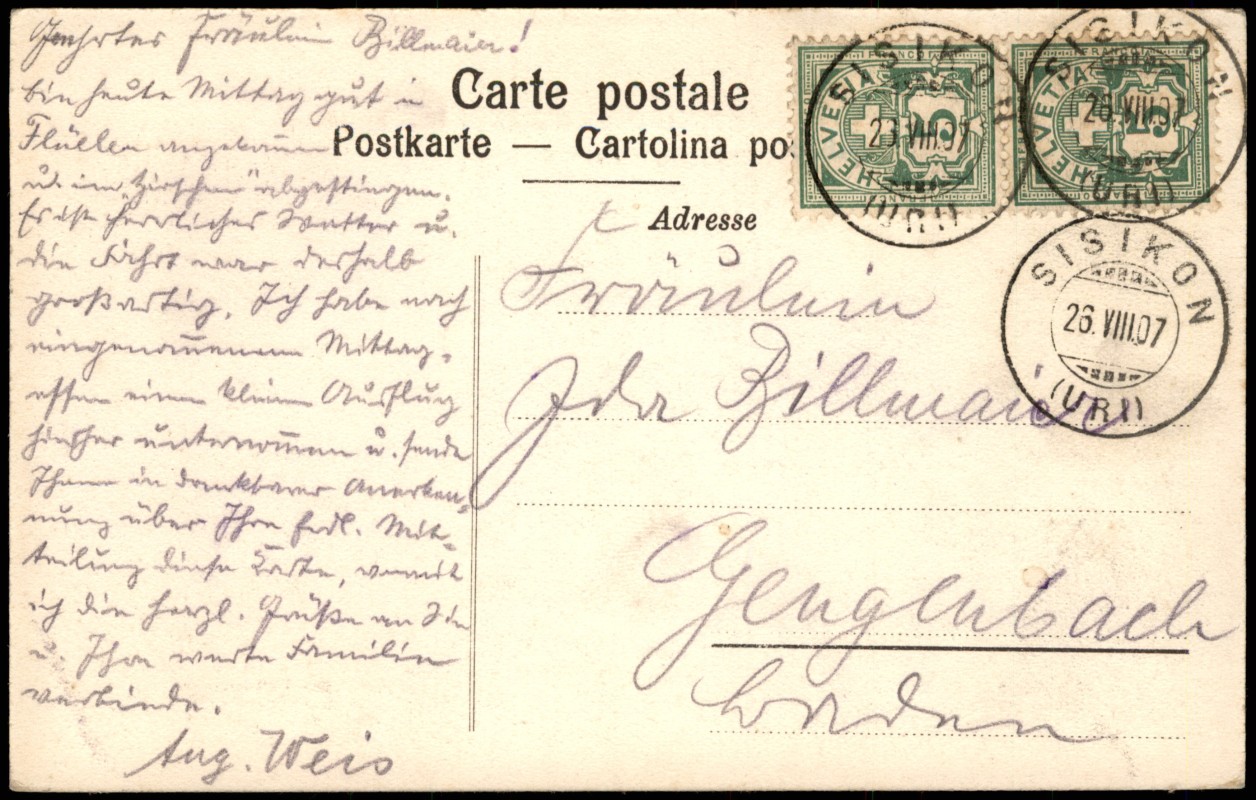 Geehrtes Fräulein Billmaier!
bin heute Mittag gut in
Flüelen angekommen
u. im „Hirschen" abgestiegen.
Es ist herrliches Wetter u.
die Fahrt war deshalb
großartig. Ich habe nach
eingenommenem Mittag-
essen einen kleinen Ausflug
hieher unternommen u. sende
Ihnen in dankbarer Anerken-
nung über Ihre frdl. Mit-
teilung diese Karte, womit
ich die herzl. Grüße an Sie
u. Ihre werte Familie
verbinde.
Aug. Weis
Carte postale
Postkarte — Cartolina po
Adresse
Fräulein
Ida Billmaier
Gengenbach
Baden
HELVETIA
FRANCO
5
HELVETIA
FRANCO
5
SISIKON
26.VIII.07
(URI)
SISIKON
26.VIII.07
(URI)
SISIKON
26.VIII.07
(URI)